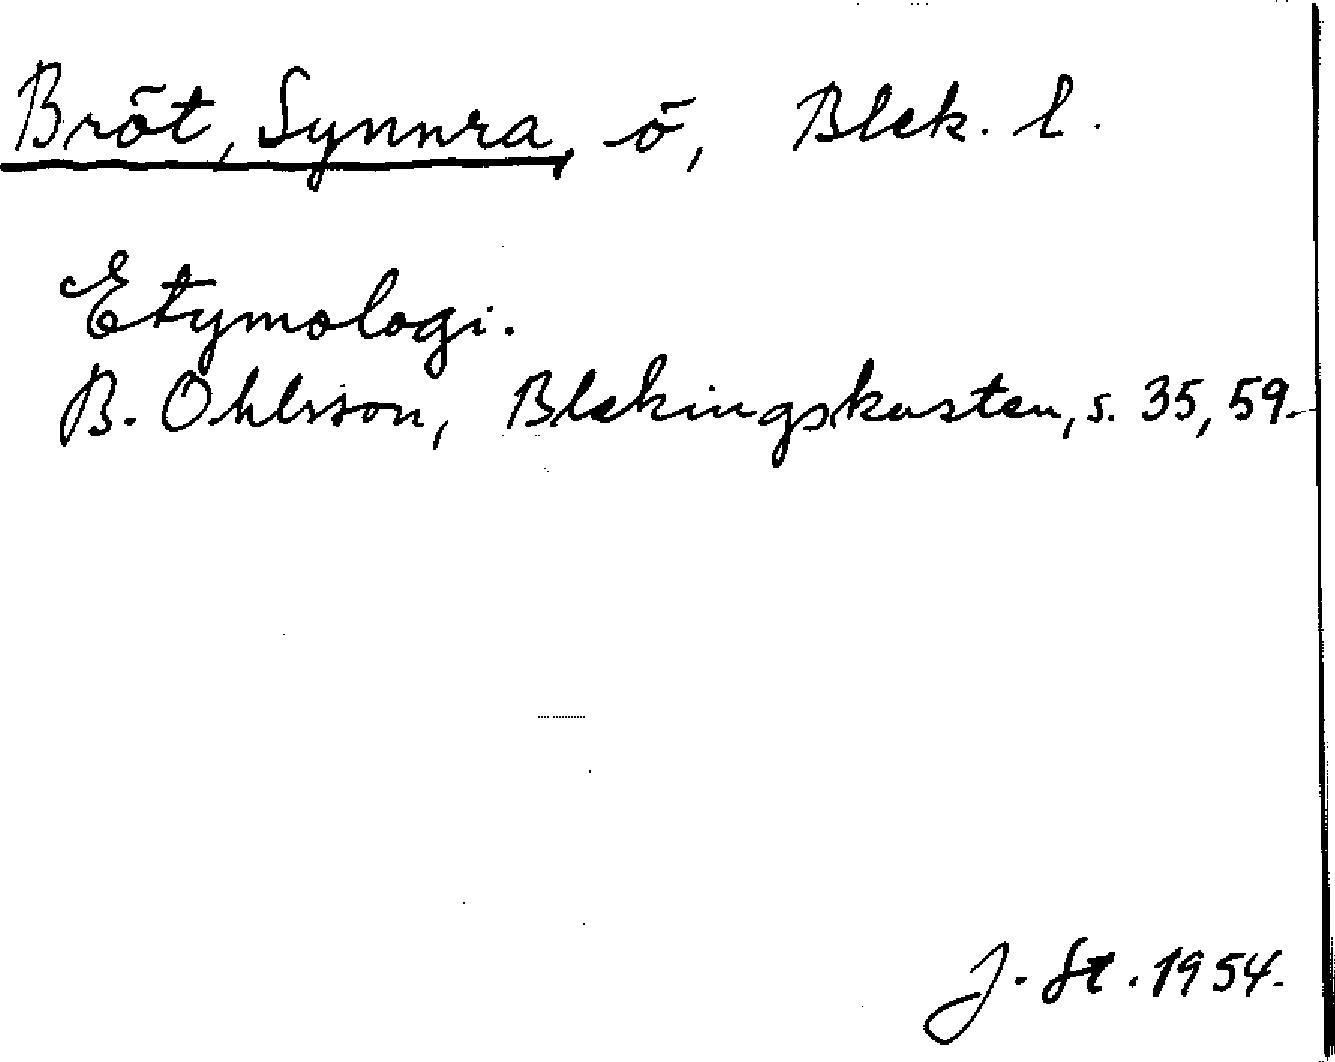 Bröt, Synnra, ö, Blek. l.
Etymologi.
B. Ohlsson, Blekingskusten, s. 35, 59.
J. St. 1954.